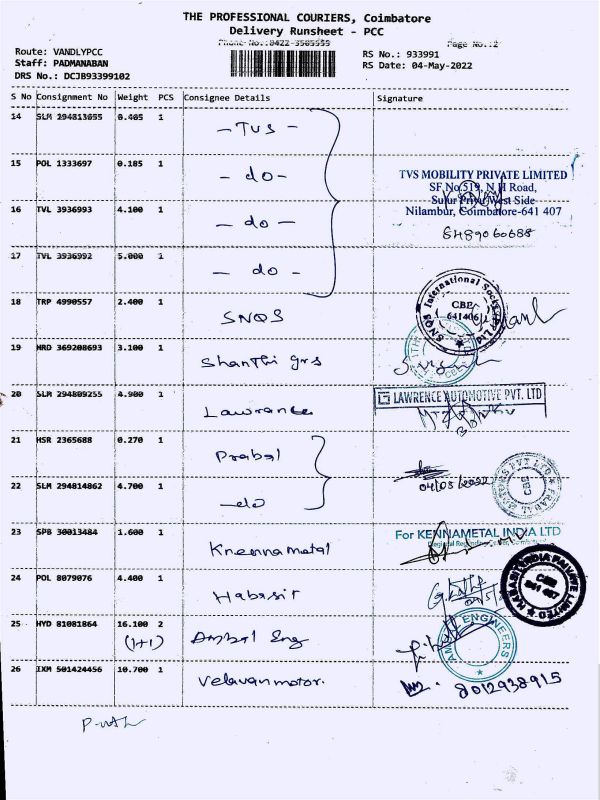 THE PROFESSIONAL COURIERS, Coimbatore
Delivery Runsheet - PCC
Phone No.:0422-3505555 Page No.:2
Route: VANDLYPCC
Staff: PADMANABAN
DRS No.: DCJB93399102
RS No.: 933991
RS Date: 04-May-2022
S No Consignment No Weight PCS Consignee Details Signature
14 SLM 294813055 0.405 1 - TVS -
15 POL 1333697 0.185 1 - do -
TVS MOBILITY PRIVATE LIMITED
SF No.519, N H Road,
Sulur Privu West Side
Nilambur, Coimbatore-641 407
16 TVL 3936993 4.100 1 - do -
8489060688
17 TVL 3936992 5.000 1 - do -
18 TRP 4990557 2.400 1 SNQS
SNQS International Socks Pvt Ltd
CBE
641406
19 HRD 369208693 3.100 1 Shanthi grs
20 SLM 294809255 4.900 1 Lawrance
LAWRENCE AUTOMOTIVE PVT. LTD
21 HSR 2365688 0.270 1 Prabal
22 SLM 294814862 4.700 1 -do
04/05/2022
MOTORS PVT LTD
CBE
23 SPB 30013484 1.600 1 Kneennametal
For KENNAMETAL INDIA LTD
24 POL 8079076 4.400 1 Habasit
HABASIT INDIA PRIVATE LIMITED
CBE
641 407
25 HYD 81081864 16.100 2 Ambal Eng
(1+1)
ENGINEERS
26 IXM 501424456 10.700 1 Velavan motor.
8012938915